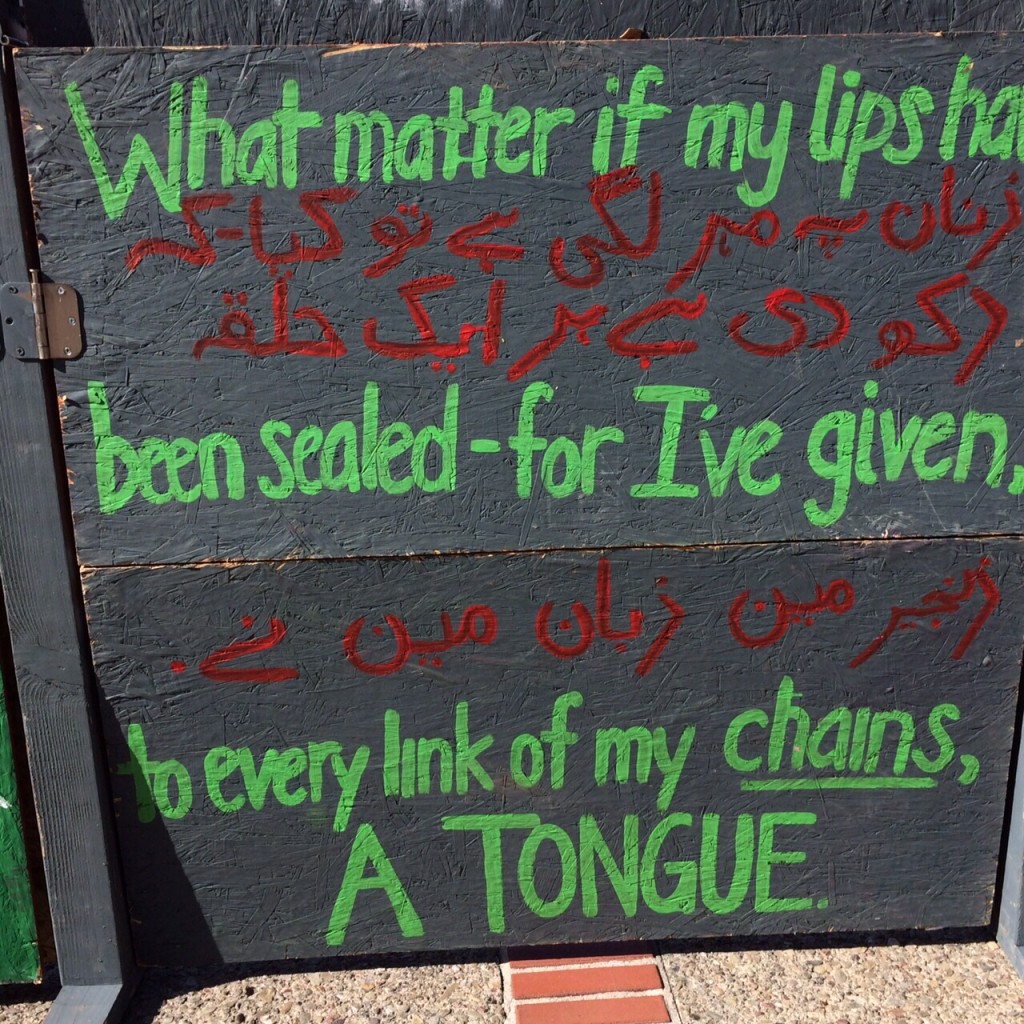 What matter if my lips ha
زبان پہ مہر لگی ہے تو کیا-کہ
رکھ دی ہے ہر ایک حلقہ
been sealed - for I've given,
زنجیر مین زبان مین نے.
to every link of my chains,
A TONGUE.